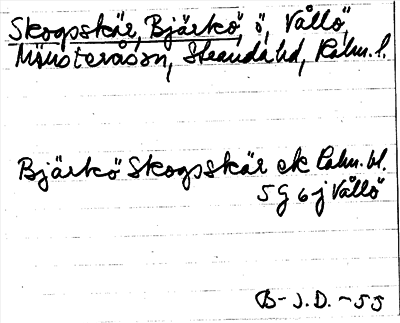 Skogsskär, Bjärkö, ö, Vållö,
Mönsterås sn, Stranda hd, Kalm. l.
Bjärkö Skogsskär ek Kalm. bl.
5 G 6 j Vållö
B-J.D. -55